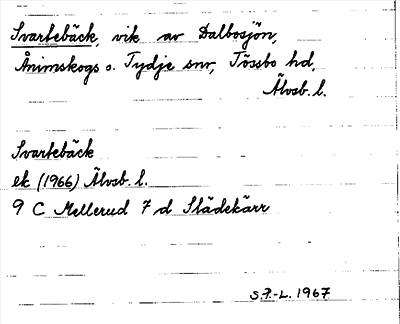 Svartebäck, vik av Dalbosjön,
Ånimskogs o. Tydje snr, Tössbo hd,
Älvsb. l.
Svartebäck
ek (1966) Älvsb. l.
9 C Mellerud 7 d Slädekärr
S.F.-L. 1967